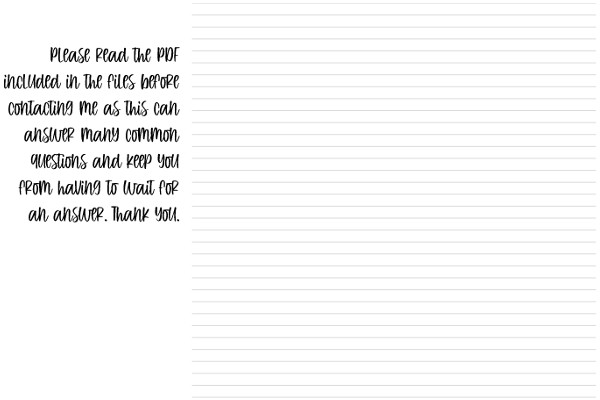 Please Read the PDF
included in the files before
contacting me as this can
answer many common
questions and keep you
from having to wait for
an answer. Thank you.